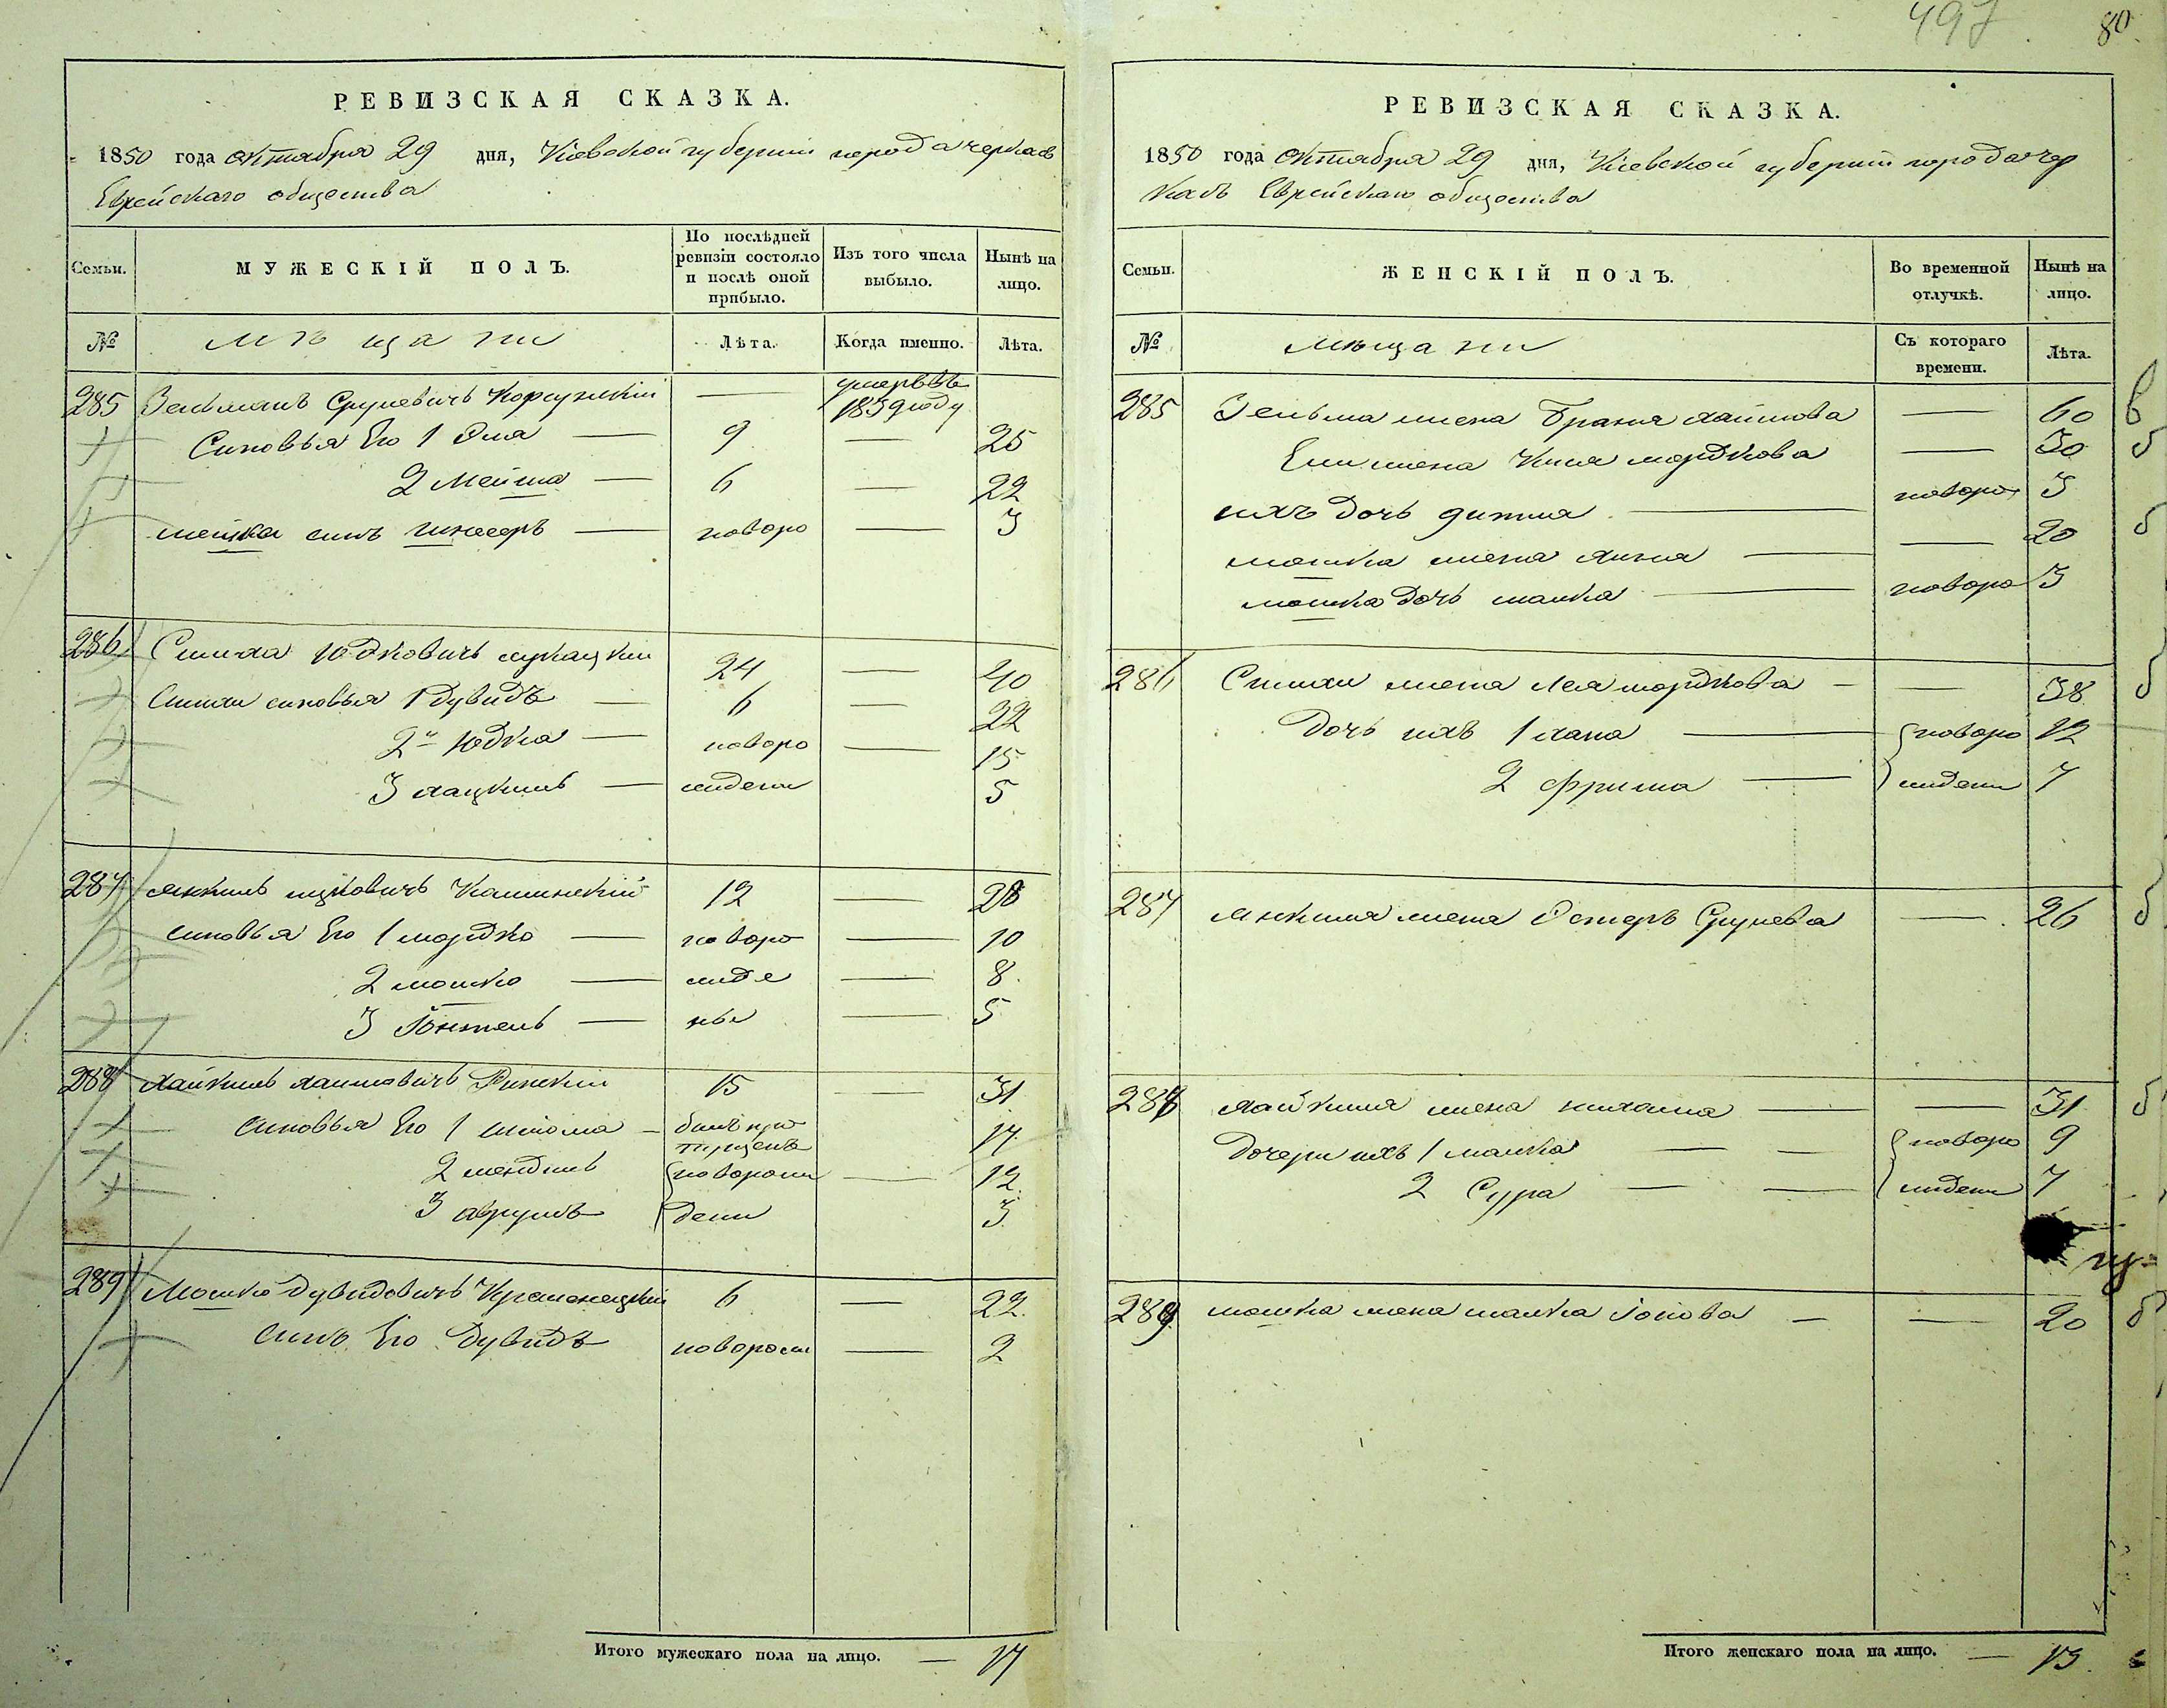 497. 80.
РЕВИЗСКАЯ СКАЗКА.
1850 года октября 29 дня, Кіевской губерніи города Черкасъ
Еврейскаго общества
Семьи. МУЖЕСКІЙ ПОЛЪ. По послѣдней ревизіи состояло и послѣ оной прибыло. Изъ того числа выбыло. Нынѣ на лицо.
№ мѣщани Лѣта. Когда именно. Лѣта.
285 Зельманъ Срулевичъ Корсунскій — умеръ въ 1839 году
Синовья Его 1 — 9 — 25
2 Мейша — 6 — 22
сынъ — новоро — 3
286 Симха Юдковичъ 24 — 40
Симхи синовья 1 Дувидъ — 6 — 22
2й Юдка — новоро — 15
3 Хацкиль — жидени 5
287 Янкиль ицковичъ Каминскій 12 — 28
синовья Его 1 мордко — новоро — 10
2 мошко — жде — 8
3 — ны — 5
288 Хайкиль хаимовичъ Ринскій 15 — 31
синовья Его 1 шліома — билъ про пущенъ 17
2 мендиль новорож — 12
3 аврумъ дени 3
289 Мошко Дувидовичъ Кременецкій 6 — 22
Синъ Его Дувидъ новорож — 2
Итого мужескаго пола на лицо. — 17
РЕВИЗСКАЯ СКАЗКА.
1850 года октября 29 дня, Кіевской губерніи города Чер
касъ Еврейскаго общества
Семьи. ЖЕНСКІЙ ПОЛЪ. Во временной отлучкѣ. Нынѣ на лицо.
№ мѣщани Съ котораго времени. Лѣта.
285 Зельма жена Браня хаимова — 60 в
жена мордкова — 30 б
ихъ дочь — новоро 3
мошка жена — 20 б
мошка дочь малка — новоро 3
286 Симхи жена Лея мордкова — — 38 б
Дочь ихъ 1 хана — новоро 12
2 фрима — жидени 7
287 Янкиля жена Естеръ Срулева — 26 б
288 хайкиля жена — — 31 б
Дочери ихъ 1 малка — — новоро 9
2 Сура — — жидени 7
289 мошка жена малка — — 20 б
Итого женскаго пола на лицо. — 13